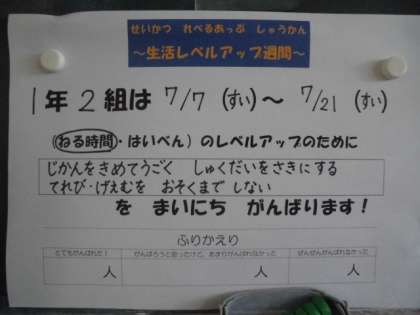 せいかつ れべるあっぷ しゅうかん
～生活レベルアップ週間～
1年2組は 7/7 (すい)～ 7/21 (すい)
(ねる時間・はいべん)のレベルアップのために
じかんをきめてうごく しゅくだいをさきにする
てれび・げえむを おそくまで しない
を まいにち がんばります!
ふりかえり
とてもがんばれた! がんばろうと思ったけど、あまりがんばれなかった ぜんぜんがんばれなかった
人 人 人